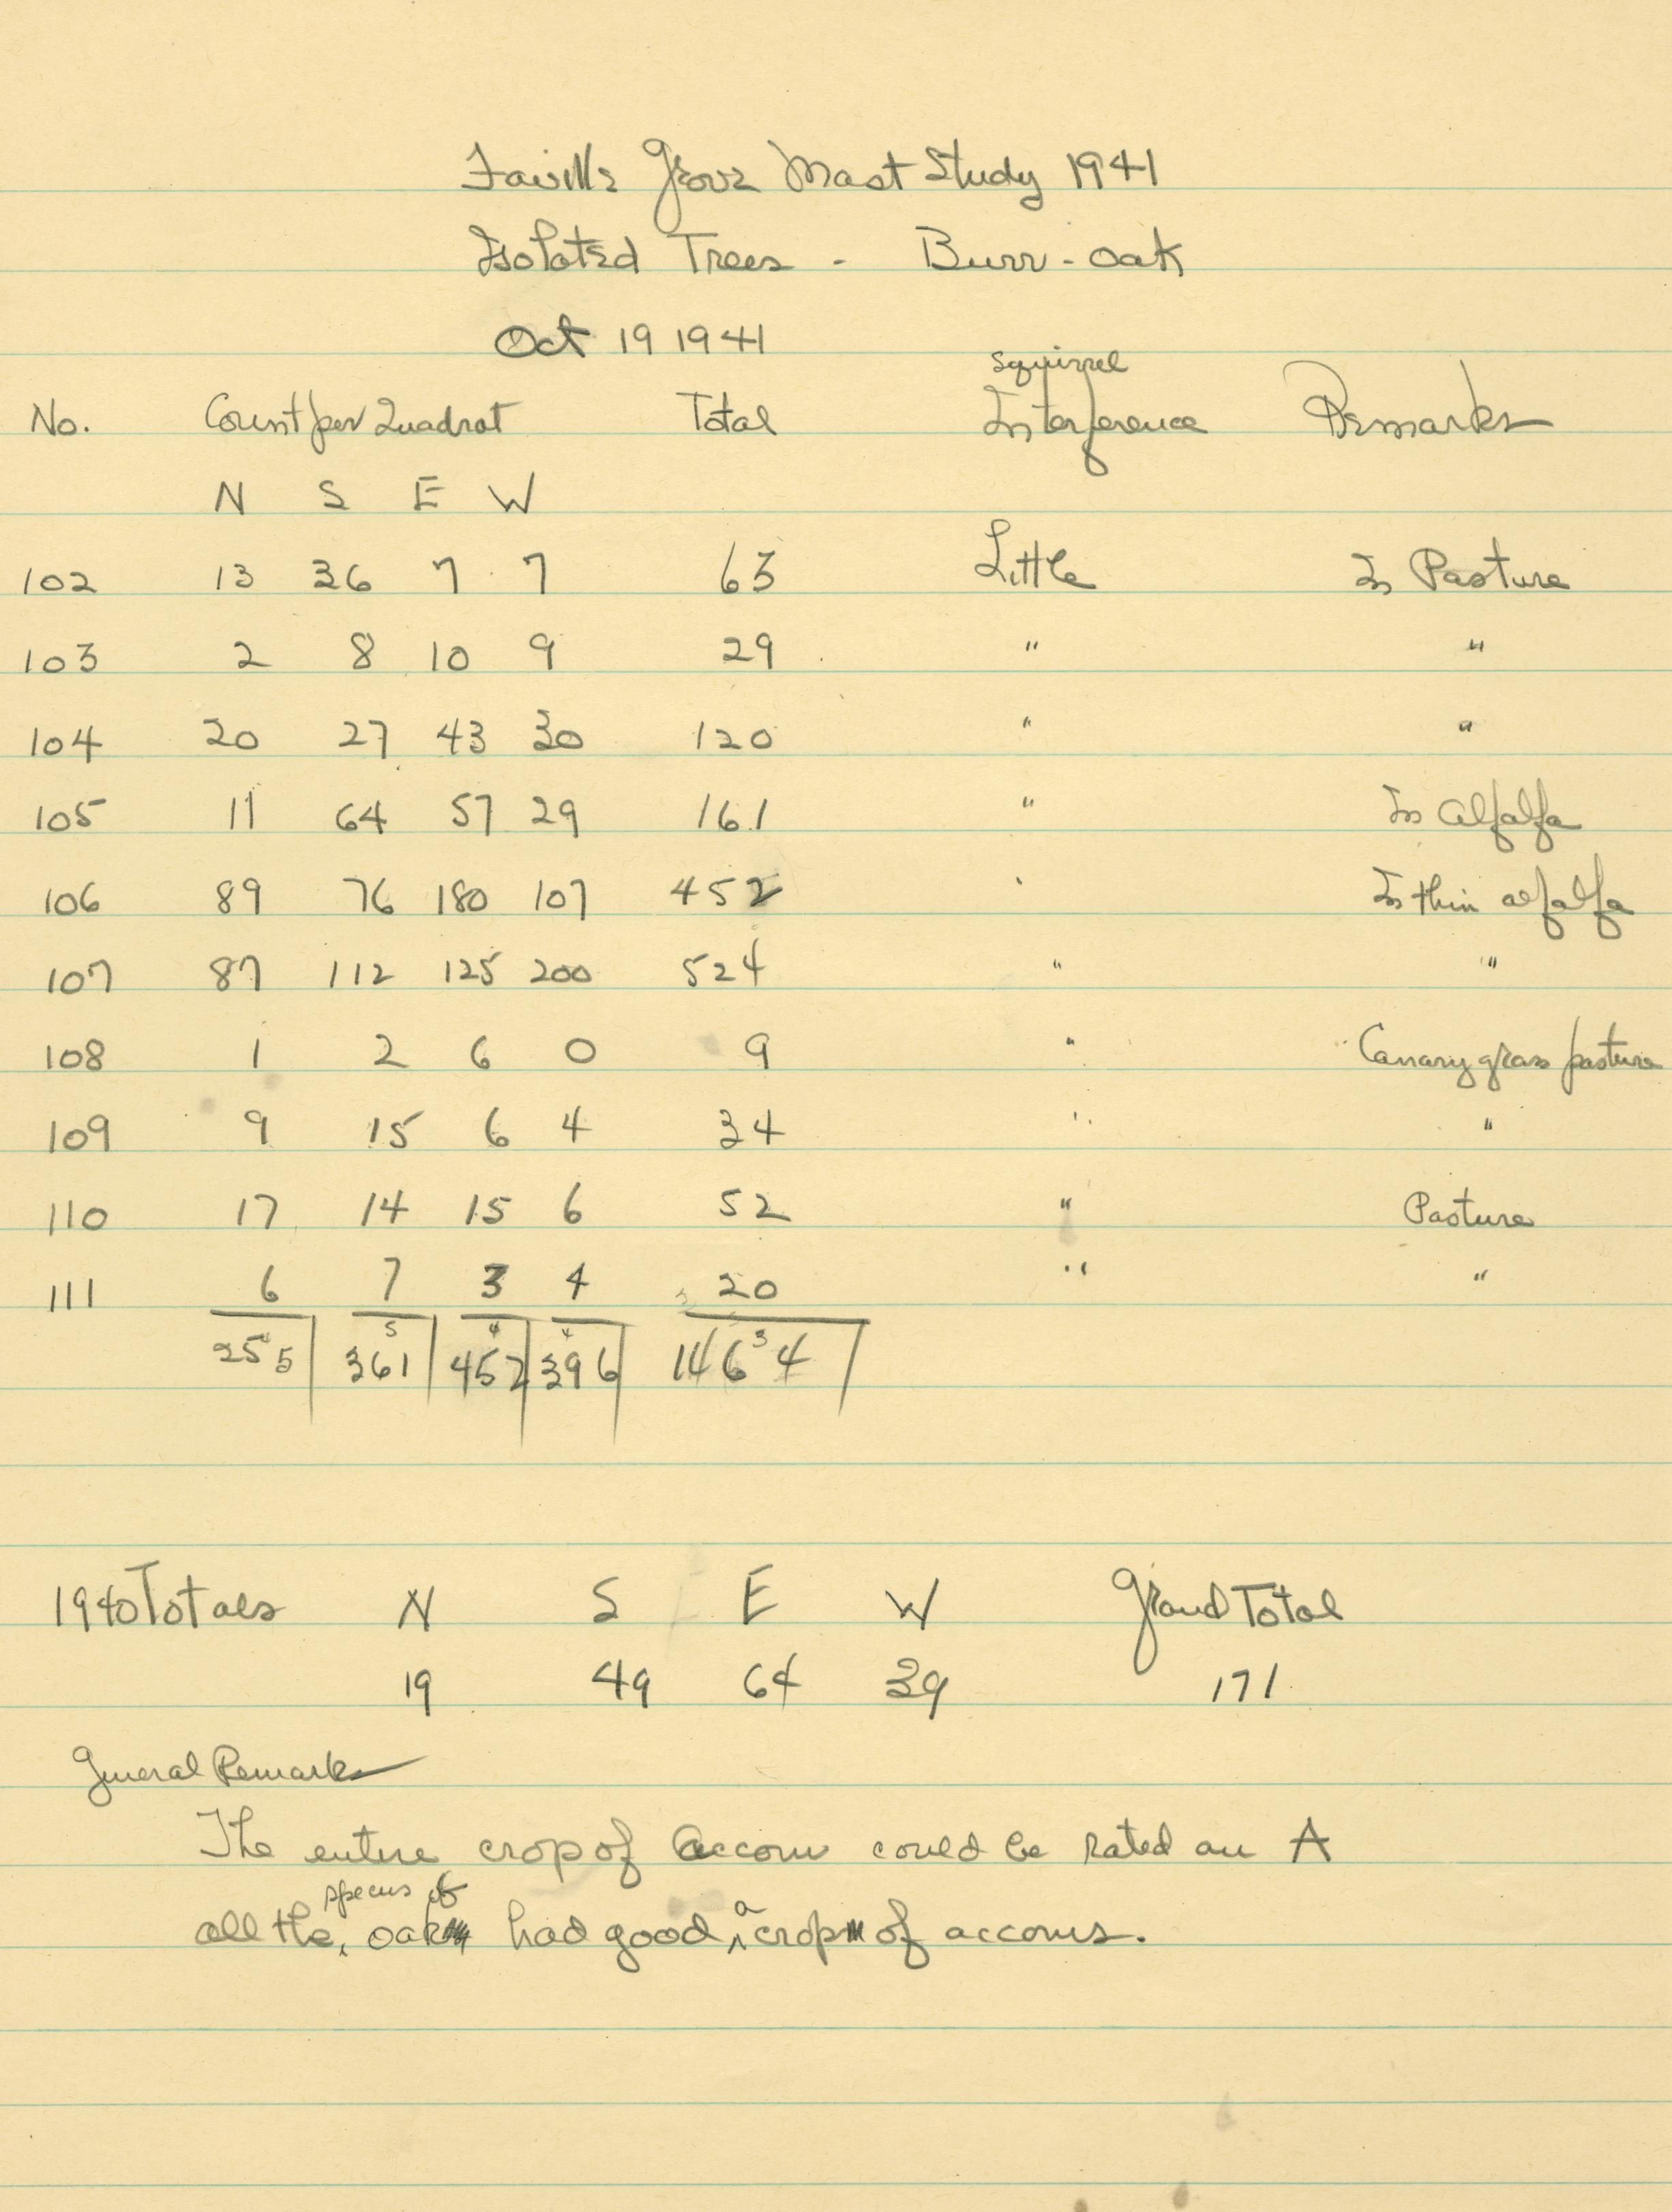 Faville Grove Mast Study 1941
Isolated Trees - Burr-oak
Oct 19 1941
No. Count per Quadrat Total Squirrel Interference Remarks
N S E W
102 13 36 7 7 63 Little In Pasture
103 2 8 10 9 29 " "
104 20 27 43 30 120 " "
105 11 64 57 29 161 " In alfalfa
106 89 76 180 107 452 " In thin alfalfa
107 87 112 125 200 524 " "
108 1 2 6 0 9 " Canary grass pasture
109 9 15 6 4 34 " "
110 17 14 15 6 52 " Pasture
111 6 7 3 4 20 " "
5 4 4 3
255 361 452 396 1464
1940 Totals N S E W Grand Total
19 49 64 39 171
General Remarks
The entire crop of accorn could be rated an A
all the species of oak had good a crop of accorns.